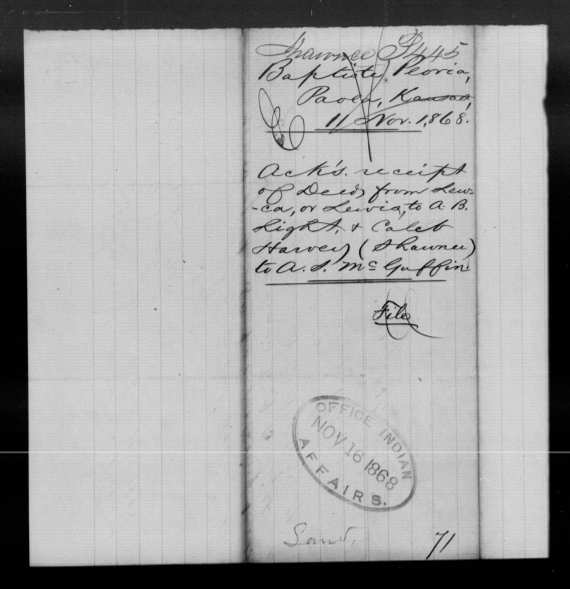 Shawnee P445
Baptiste Peoria,
Paola, Kansas,
11 Nov. 1868.
Ack's. receipt
of Deeds from Lew-
-ca, or Lewis, to A. B.
Light, & Caleb
Harvey (Shawnee)
to A. S. McGuffin
File
OFFICE INDIAN
NOV 16 1868
AFFAIRS.
Land,
71